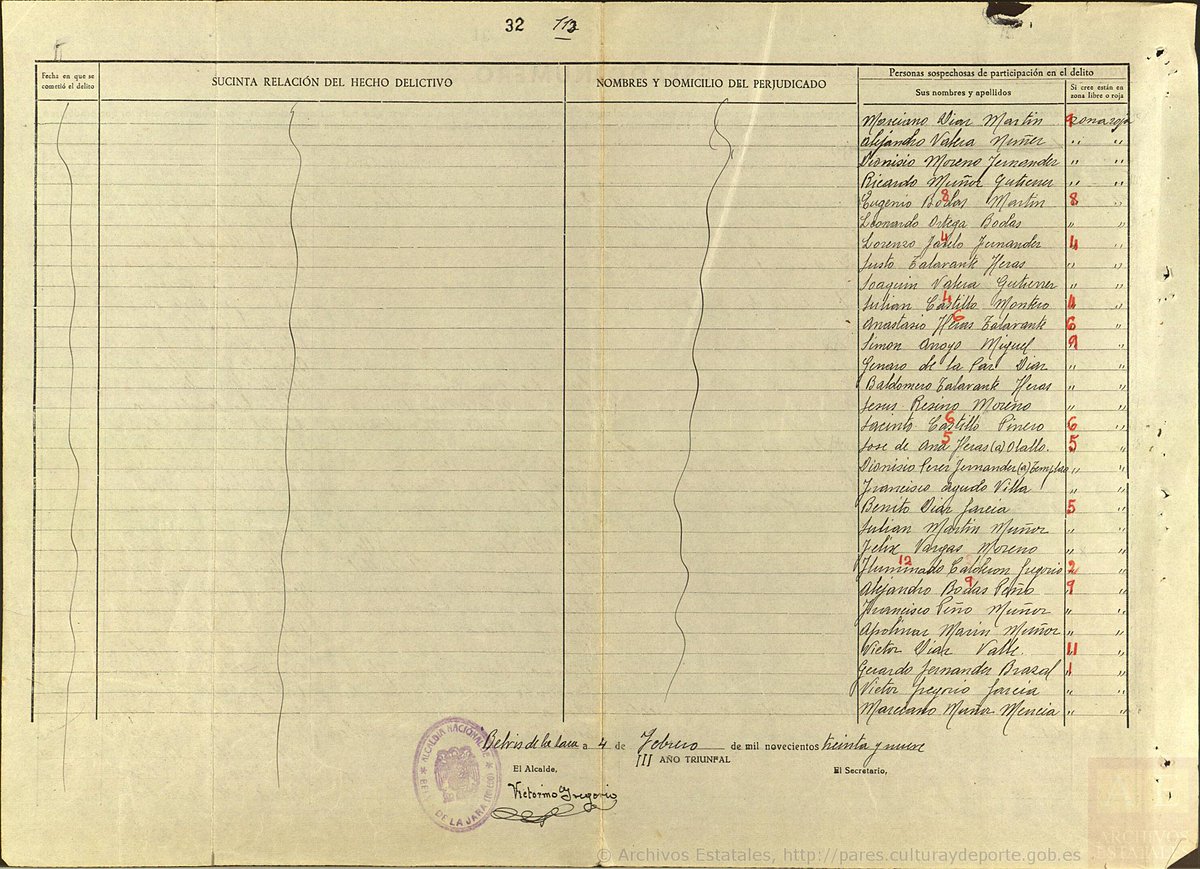 32 713
Fecha en que se cometió el delito
SUCINTA RELACIÓN DEL HECHO DELICTIVO
NOMBRES Y DOMICILIO DEL PERJUDICADO
Personas sospechosas de participación en el delito
Sus nombres y apellidos
Si cree están en zona libre o roja
Marciano Diaz Martin 9 zona roja
Alejandro Valera Nuñez " "
Dionisio Moreno Fernandez " "
Ricardo Muñoz Gutierrez " "
Eugenio Bodas Martin 8 8 "
Leonardo Ortega Bodas " "
Lorenzo Jarelo Fernandez 4 4 "
Justo Talavante Heras " "
Joaquin Valera Gutierrez " "
Julian Castillo Montero 4 4 "
Anastasio Heras Talavante 6 6 "
Simon Arroyo Miguel 9 "
Genaro de la Paz Diaz " "
Baldomero Talavante Heras " "
Jesus Resino Moreno " "
Jacinto Castillo Pinero 6 6 "
Jose de Ana Heras (a) Olallo. 5 5 "
Dionisio Perez Fernandez (a) Templao " "
Francisco Agudo Villa " "
Benito Diaz Garcia 5 "
Julian Martin Muñoz " "
Felix Vargas Moreno " "
Iluminado Calderon Gregorio 12 2 "
Alejandro Bodas Peño 9 9 "
Francisco Peño Muñoz " "
Apolinar Marin Muñoz " "
Victor Diaz Valle. 11 "
Gerardo Fernandez Brasal 1 "
Victor Gregorio Garcia " "
Marceano Muñoz Mencia " "
Belvis de la Jara a 4 de Febrero de mil novecientos treinta y nueve
III AÑO TRIUNFAL
El Alcalde,
El Secretario,
Victorino Gregorio
ALCALDIA NACIONAL DE
DE LA JARA
© Archivos Estatales, http://pares.culturaydeporte.gob.es
ARCHIVOS
ESTATALES